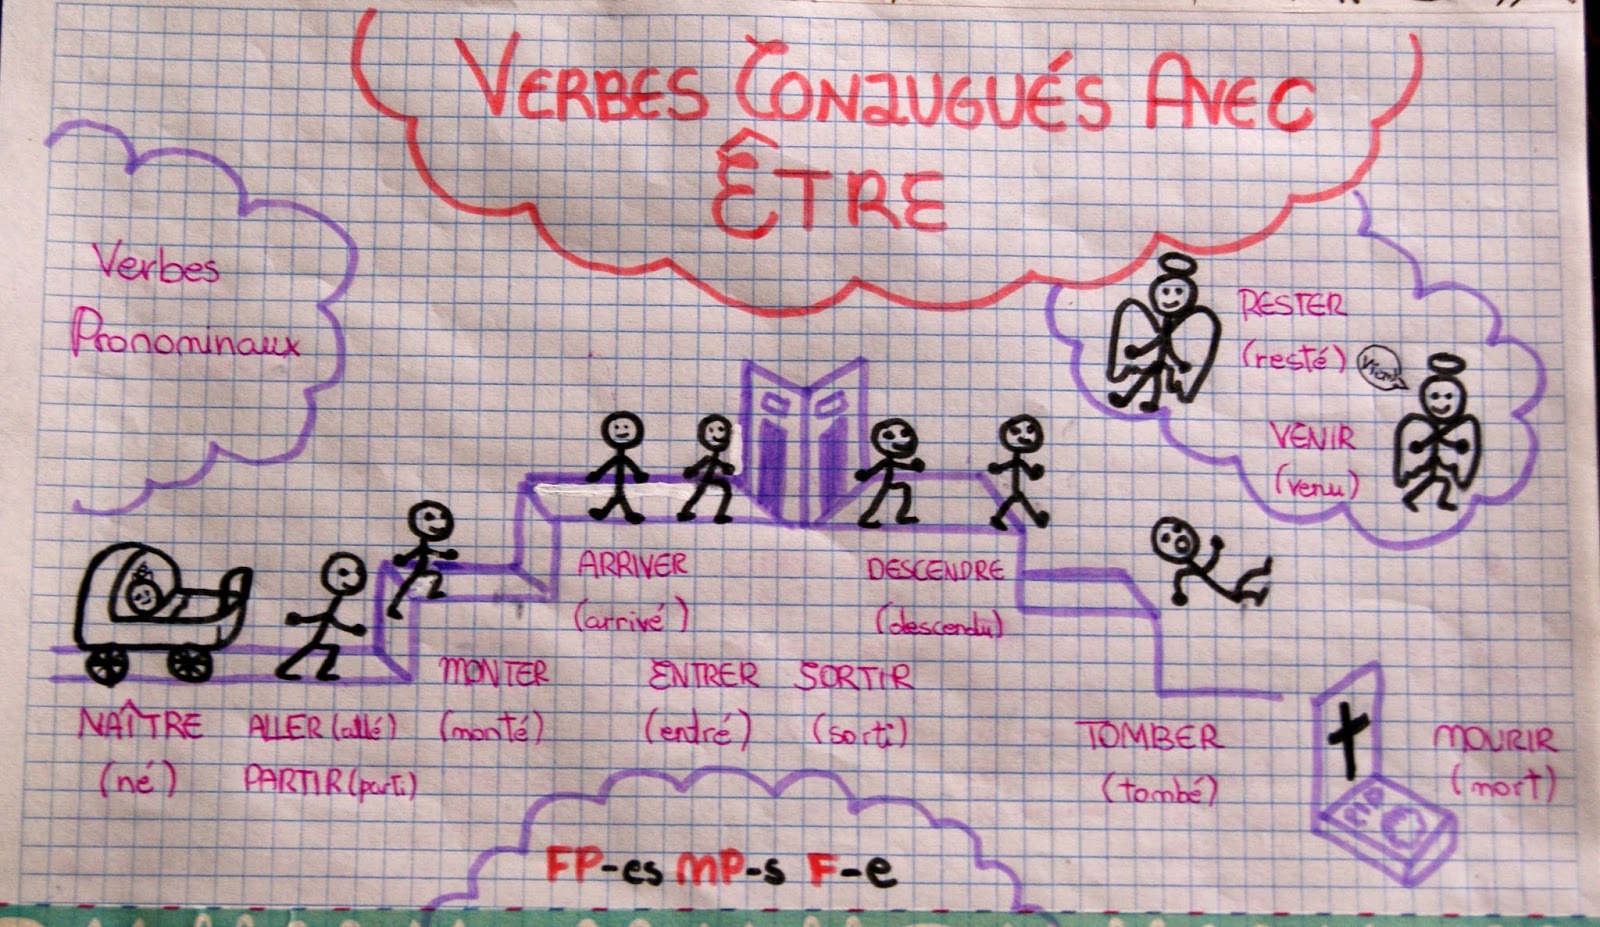 VERBES CONJUGUÉS AVEC
ÊTRE
Verbes
Pronominaux
RESTER
(resté)
VENIR
(venu)
ARRIVER
(arrivé)
DESCENDRE
(descendu)
MONTER
(monté)
ENTRER
(entré)
SORTIR
(sorti)
NAÎTRE
(né)
ALLER (allé)
PARTIR (parti)
TOMBER
(tombé)
MOURIR
(mort)
FP-es MP-s F-e